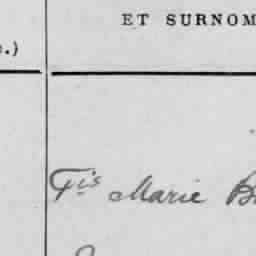 ET SURNOM
.)
Fis Marie B